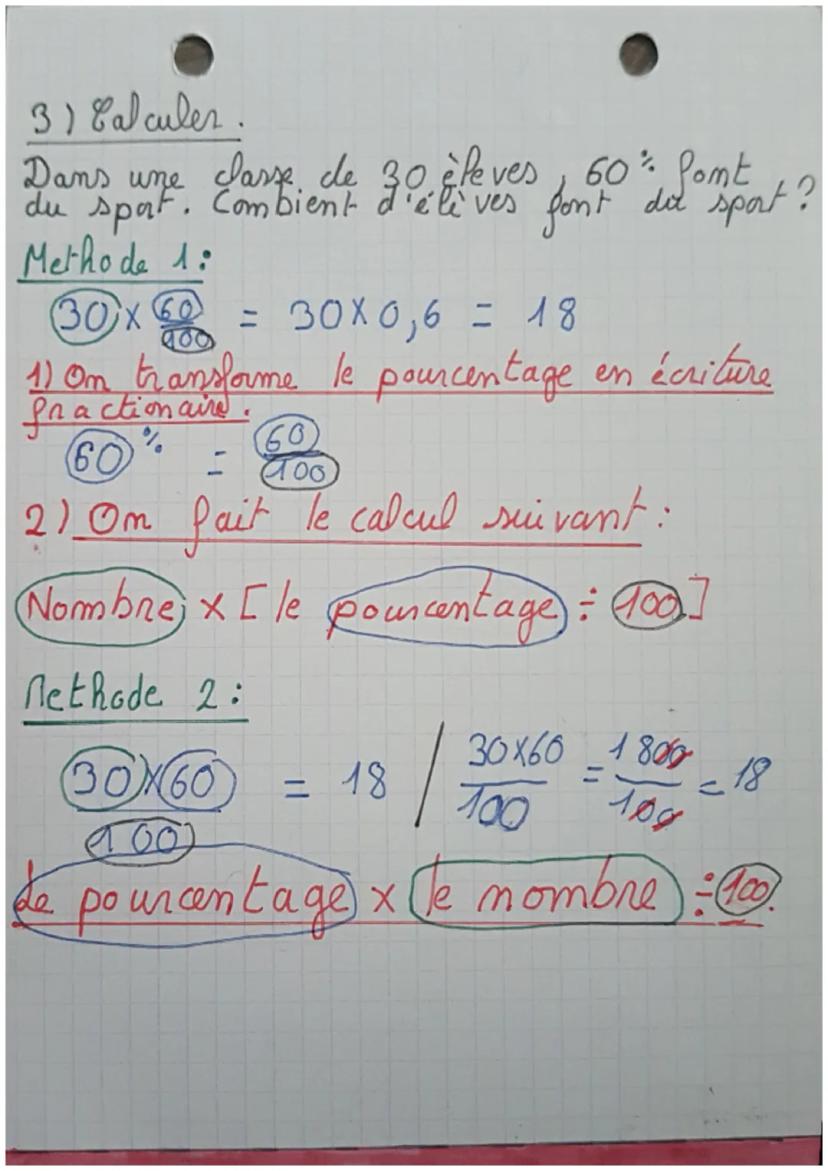 3) Calculer.
Dans une classe de 30 élèves, 60% font
du sport. Combient d'élèves font du sport?
Methode 1:
30 × 60/100 = 30 × 0,6 = 18
1) On transforme le pourcentage en écriture
fractionaire.
60% = 60/100
2) On fait le calcul suivant:
Nombre × [le pourcentage ÷ 100]
Methode 2:
30×60/100 = 18 / 30×60/100 = 1800/100 = 18
Le pourcentage × le nombre ÷ 100.